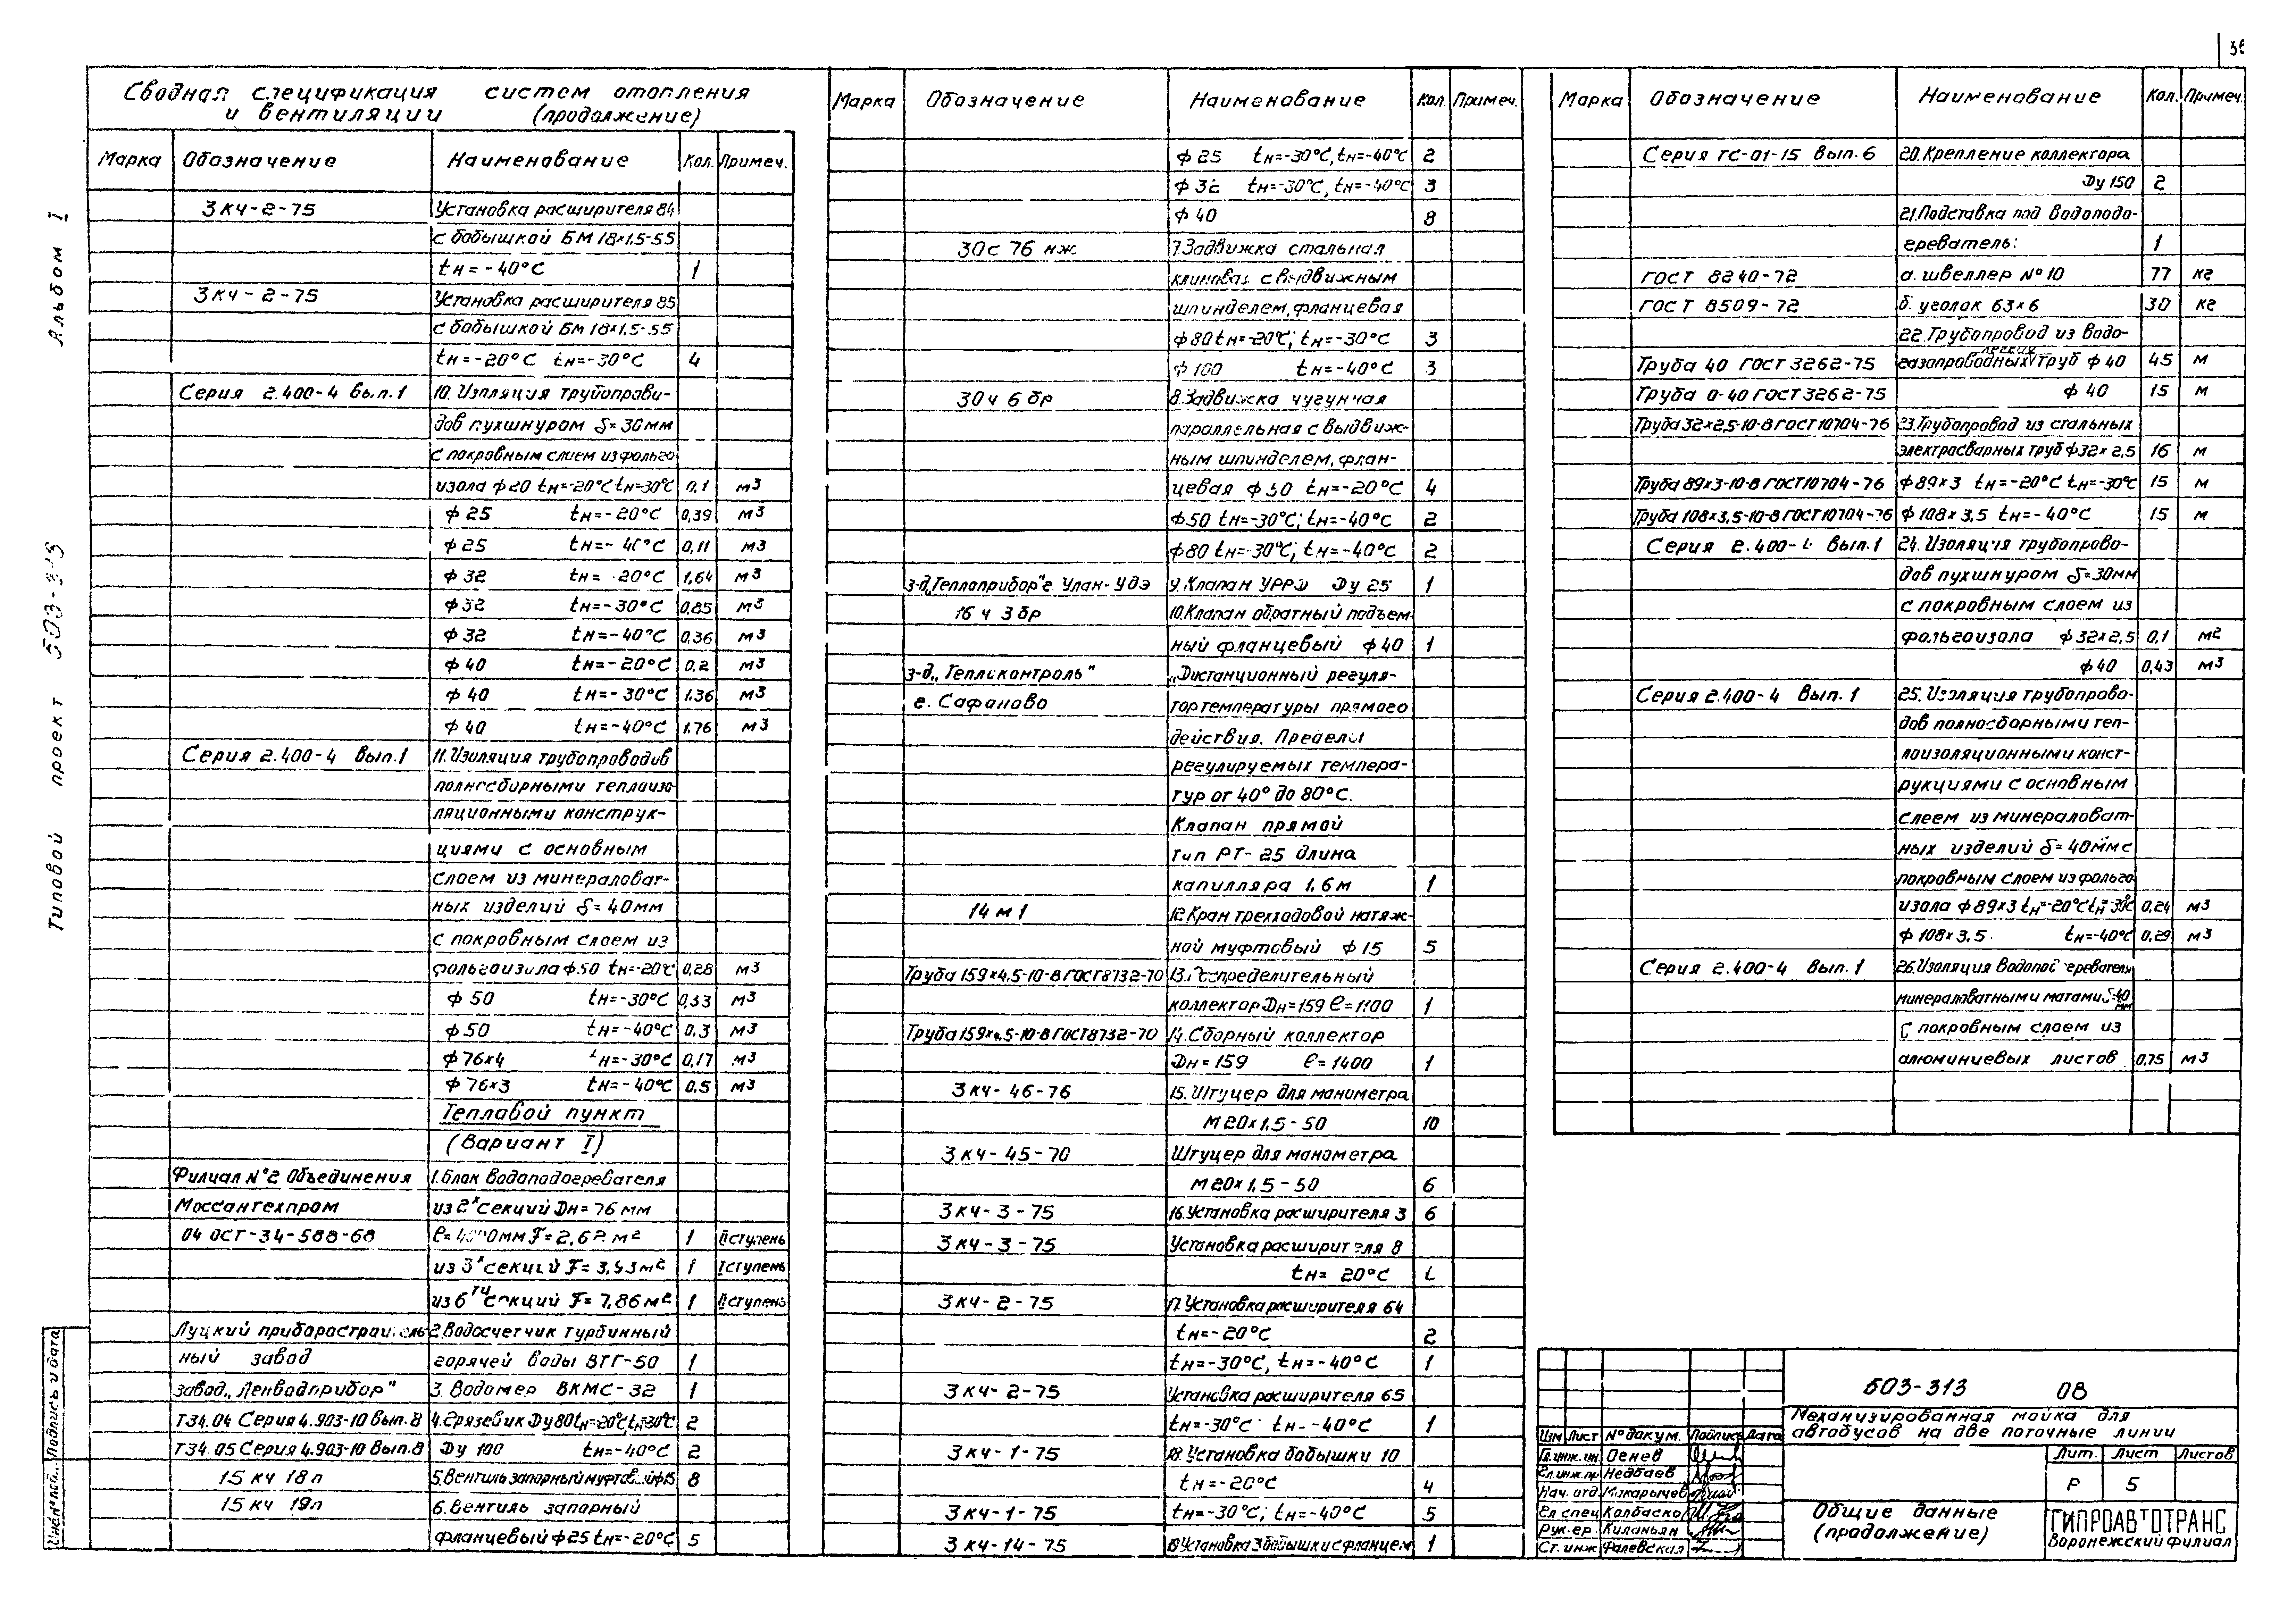 36
Альбом I
Типовой проект 503-313
Сводная спецификация систем отопления
и вентиляции (продолжение)
Марка Обозначение Наименование Кол. Примеч.
3КЧ-2-75 Установка расширителя 84
с бобышкой БМ 18×1,5-55
tн=-40°С 1
3КЧ-2-75 Установка расширителя 85
с бобышкой БМ 18×1,5-55
tн=-20°С tн=-30°С 4
Серия 2.400-4 Вып.1 10. Изоляция трубопрово-
дов пухшнуром δ=30мм
с покровным слоем из фольго
изола ф20 tн=-20°С tн=30°С 0,1 м3
ф25 tн=-20°С 0,39 м3
ф25 tн=-40°С 0,11 м3
ф32 tн=-20°С 1,64 м3
ф32 tн=-30°С 0,85 м3
ф32 tн=-40°С 0,36 м3
ф40 tн=-20°С 0,2 м3
ф40 tн=-30°С 1,36 м3
ф40 tн=-40°С 1,76 м3
Серия 2.400-4 Вып.1 11. Изоляция трубопроводов
полносборными теплоизо-
ляционными конструк-
циями с основным
слоем из минераловат-
ных изделий δ=40мм
с покровным слоем из
фольгоизола ф50 tн=-20°С 0,28 м3
ф50 tн=-30°С 0,33 м3
ф50 tн=-40°С 0.3 м3
ф76×4 tн=-30°С 0,17 м3
ф76×3 tн=-40°С 0.5 м3
Тепловой пункт
(Вариант I)
Филиал №2 Объединения 1. Блок водоподогревателя
Моссантехпром из 2х секций Dн=76мм
04 ОСТ-34-588-68 F=2,62 м2 1 II ступень
из 3х секций F=3,93м2 1 I ступень
из 6ти секций F=7,86 м2 1 II ступень
Луцкий приборостроитель 2. Водосчетчик турбинный
ный завод горячей воды ВТГ-50 1
завод „Ленводприбор" 3. Водомер ВКМС-32 1
Т34.04 Серия 4.903-10 Вып.8 4. Грязевик Ду80 tн=-20°С, tн=30°С 2
Т34.05 Серия 4.903-10 Вып.8 Ду 100 tн=-40°С 2
15 кч 18п 5. Вентиль запорный муфтовый ф15 8
15 кч 19п 6. Вентиль запорный
фланцевый ф25 tн=-20°С 5
Марка Обозначение Наименование Кол. Примеч.
ф25 tн=-30°С, tн=-40°С 2
ф32 tн=-30°С, tн=-40°С 3
ф40 8
30с 76 нж 7. Задвижка стальная
клиновая с выдвижным
шпинделем, фланцевая
ф80 tн=-20°С; tн=-30°С 3
ф100 tн=-40°С 3
30ч 6 бр 8. Задвижка чугунная
параллельная с выдвиж-
ным шпинделем, флан-
цевая ф50 tн=-20°С 4
ф50 tн=-30°С; tн=-40°С 2
ф80 tн=-30°С; tн=-40°С 2
з-д „Теплоприбор" г. Улан-Удэ 9. Клапан УРРД Ду 25 1
16 ч 3 бр 10. Клапан обратный подъем-
ный фланцевый ф40 1
з-д „Теплоконтроль" „Дистанционный регуля-
г. Сафоново тор температуры прямого
действия. Пределы
регулируемых темпера-
тур от 40° до 80°С.
Клапан прямой
тип РТ-25 длина
капилляра 1,6м 1
14 м 1 12. Кран трехходовой натяж-
ной муфтовый ф15 5
Труба 159×4,5-10-8 ГОСТ 8732-70 13. Распределительный
коллектор Dн=159 ℓ=1100 1
Труба 159×4,5-10-8 ГОСТ 8732-70 14. Сборный коллектор
Dн=159 ℓ=1400 1
3КЧ-46-76 15. Штуцер для манометра
М20×1,5-50 10
3КЧ-45-70 Штуцер для манометра
М20×1,5-50 6
3КЧ-3-75 16. Установка расширителя 3 6
3КЧ-3-75 Установка расширителя 8
tн= 20°С
3КЧ-2-75 17. Установка расширителя 64
tн=-20°С 2
tн=-30°С, tн=-40°С 1
3КЧ-2-75 Установка расширителя 65
tн=-30°С tн--40°С 1
3КЧ-1-75 18. Установка бобышки 10
tн=-20°С 4
3КЧ-1-75 tн=-30°С; tн=-40°С 5
3КЧ-14-75 19 Установка 3 бобышки с фланцем 1
Марка Обозначение Наименование Кол. Примеч.
Серия ТС-01-15 Вып.6 20. Крепление коллектора
Ду 150 2
21. Подставка под водоподо-
греватель: 1
ГОСТ 8240-72 а. швеллер №10 77 кг
ГОСТ 8509-72 б. уголок 63×6 30 кг
22. Трубопровод из водо-
Труба 40 ГОСТ 3262-75 газопроводных легких труб ф40 45 м
Труба 0-40 ГОСТ 3262-75 ф40 15 м
Труба 32×2,5-10-8 ГОСТ 10704-76 23. Трубопровод из стальных
электросварных труб ф32×2,5 16 м
Труба 89×3-10-8 ГОСТ 10704-76 ф89×3 tн=-20°С tн=-30°С 15 м
Труба 108×3,5-10-8 ГОСТ 10704-76 ф108×3,5 tн=-40°С 15 м
Серия 2.400-4 Вып.1 24. Изоляция трубопрово-
дов пухшнуром δ=30мм
с покровным слоем из
фольгоизола ф32×2,5 0,1 м2
ф40 0,43 м3
Серия 2.400-4 Вып.1 25. Изоляция трубопрово-
дов полносборными теп-
лоизоляционными конст-
рукциями с основным
слоем из минераловат-
ных изделий δ=40мм с
покровным слоем из фольго
изола ф89×3 tн=-20°С tн=-30°С 0,24 м3
ф108×3,5 tн=-40°С 0,29 м3
Серия 2.400-4 Вып.1 26. Изоляция водоподогревателя
минераловатными матами δ-40 мм
с покровным слоем из
алюминиевых листов 0,75 м3
503-313 08
Механизированная мойка для
автобусов на две поточные линии
Изм Лист № докум. Подпись Дата
Гл. инж. ин. Пенев
Гл. инж. пр Недбаев
Нач. отд. Макарычев
Гл спец Колбаско
Рук. гр Киланьян
Ст. инж Фалевская
Лит. Лист Листов
Р 5
Общие данные
(продолжение)
ГИПРОАВТОТРАНС
Воронежский филиал
Подпись и дата